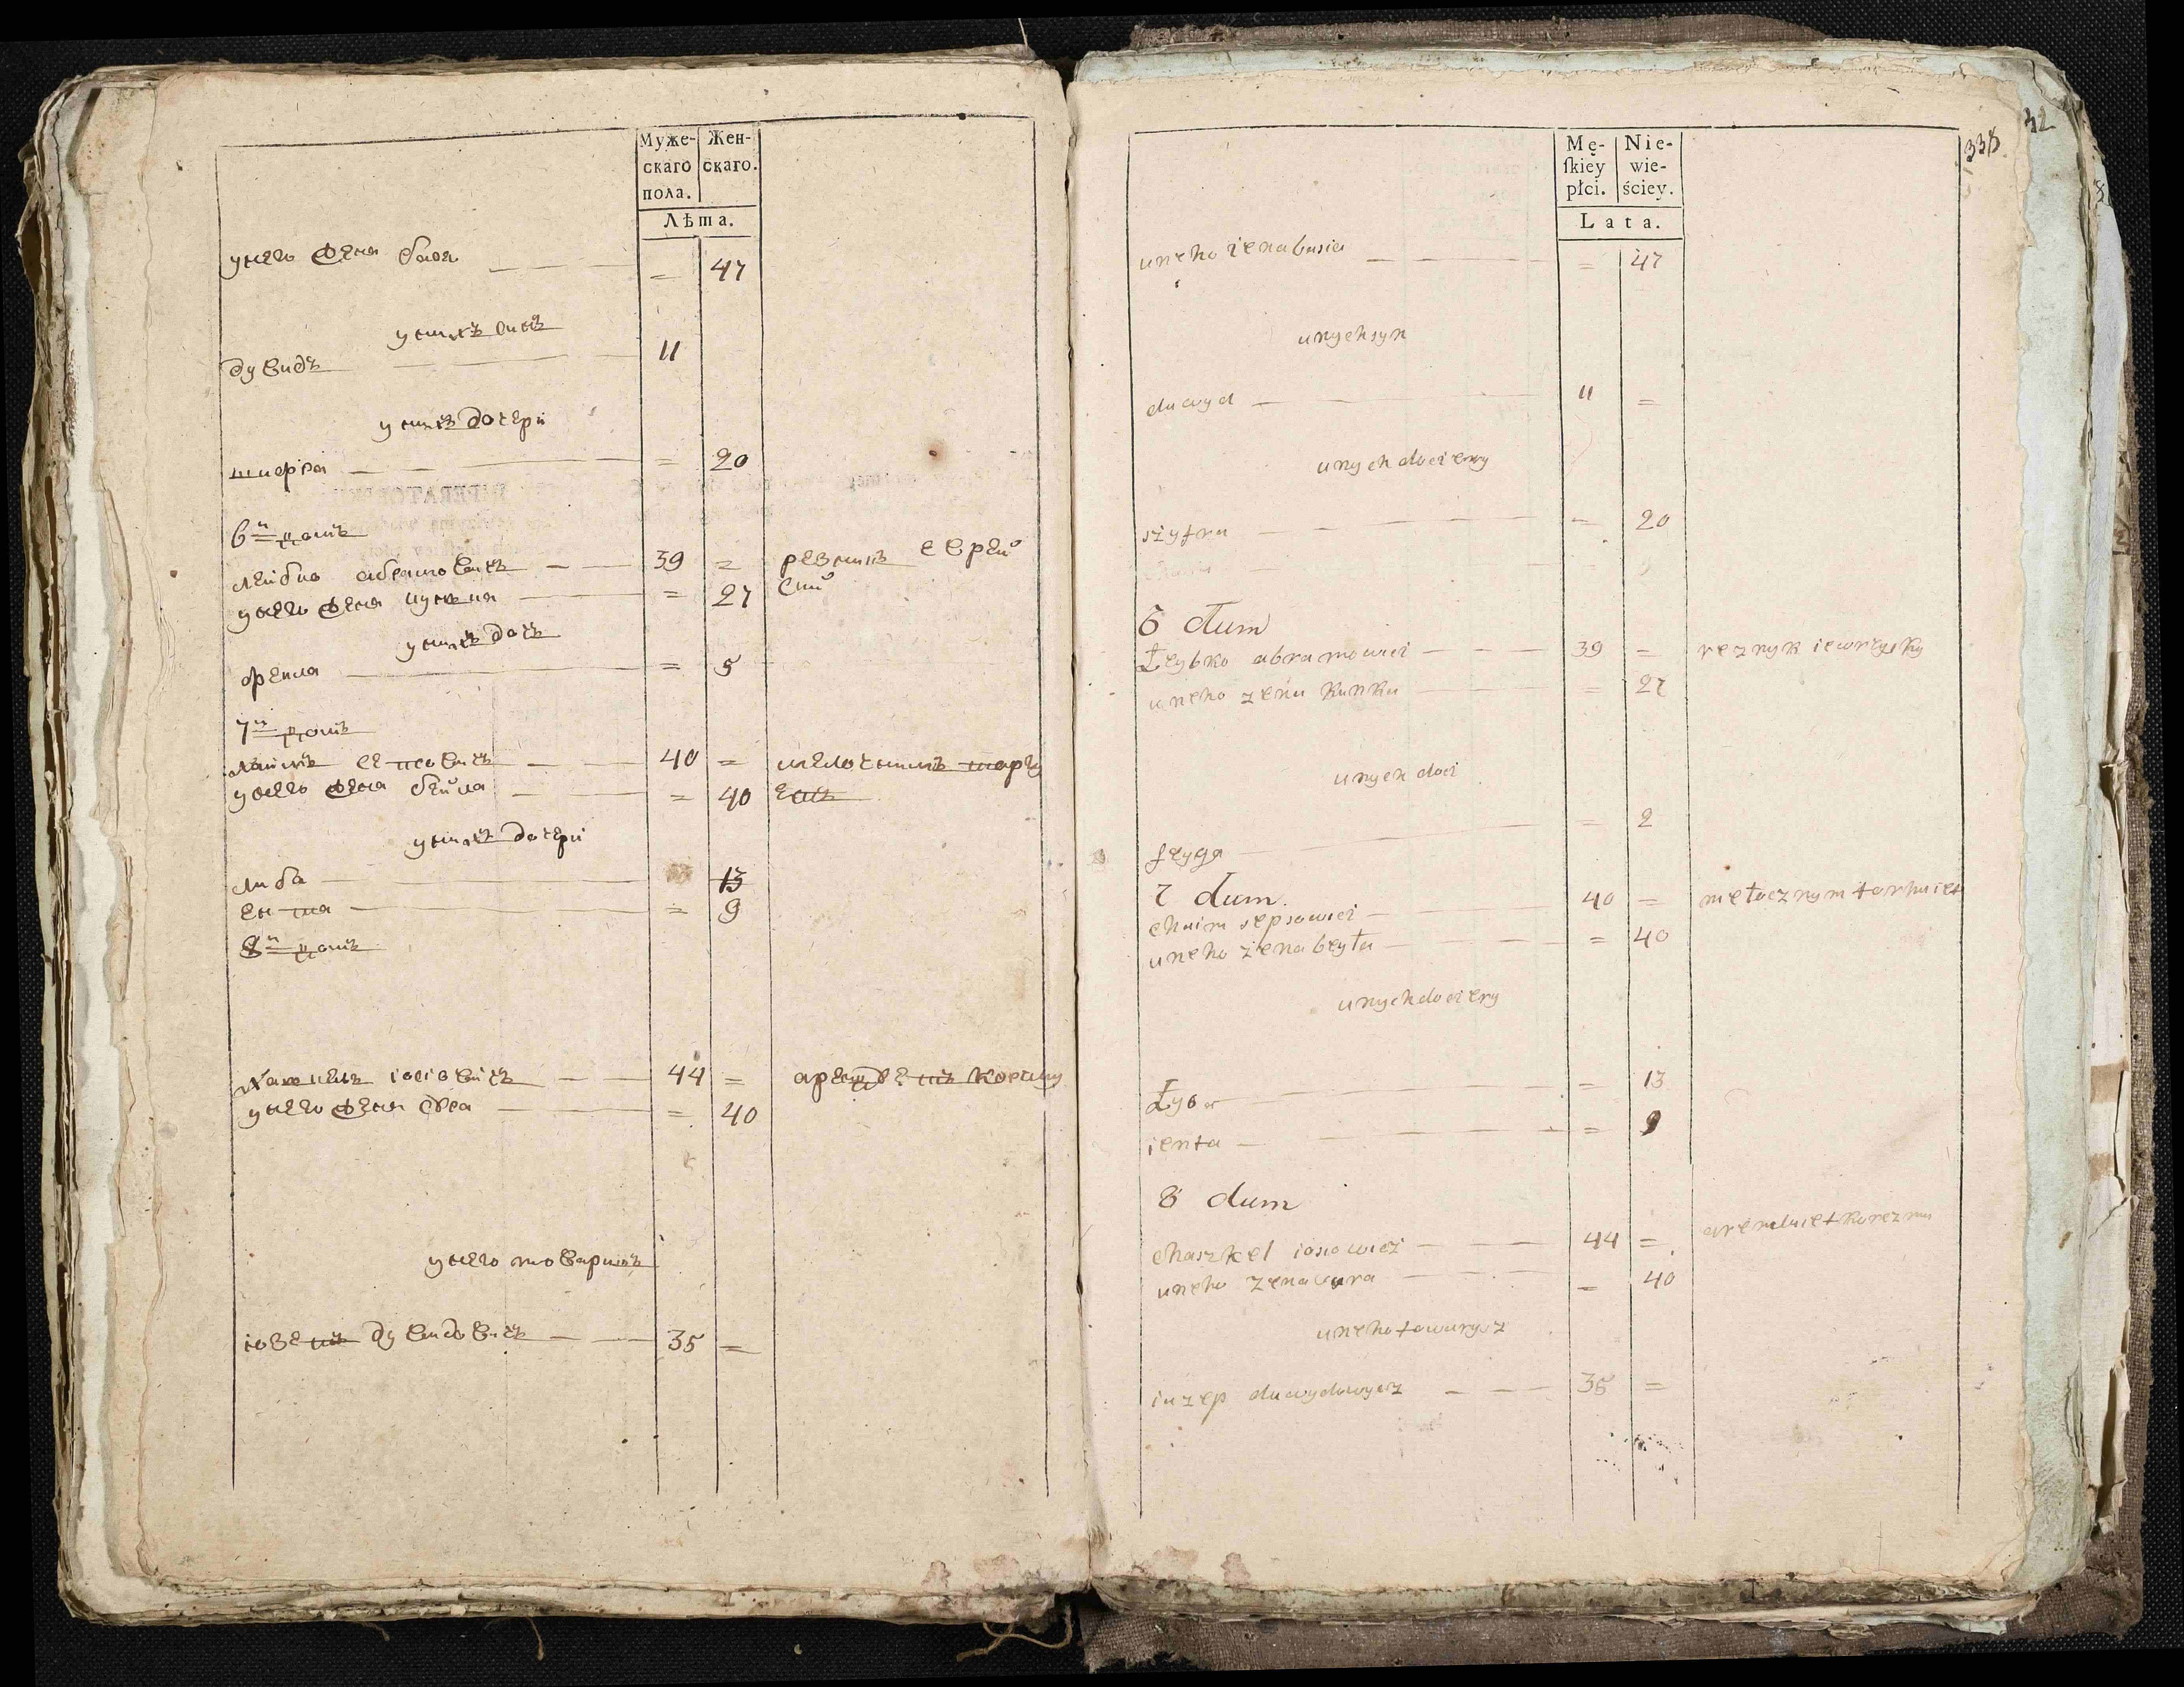 Муже-
скаго
пола.
Жен-
скаго.
Лѣта.
у него жена бася = 47
у нихъ синъ
дувидъ 11
у нихъ дочери
шифра = 20
6й домъ
лейбко абрамовичъ 39 = резникъ еврей
ский
у него жена кунка = 27
у нихъ дочъ
фейга = 5
7й домъ
хаимъ сепсовичъ 40 = мелочнимъ торгу
етъ
у него жена бейла = 40
у нихъ дочери
либа 13
ента = 9
8й домъ
хаскель іосіовичъ 44 = арендуетъ корчму
у него жена сура = 40
у него товаришъ
іозепъ дувидовичъ 35 =
32
338
Mę-
ſkiey
płci.
Nie-
wie-
ściey.
Lata.
uneho żena basia = 47
unych syn
duwyd 11 =
unych doczery
szyfra = 20
6 dum
Łeybko abramowicz 39 = reznyk iewreysky
uneho zena Kunka = 27
unych docz
feyga = 2
7 dum.
chaim sepsowicz 40 = mełocznym torhuiet
uneho żena beyła = 40
unych doczery
Łyba = 13
ienta = 9
8 dum
chaszkel iosiowicz 44 = areduiet korczmu
uneho Zena sura = 40
uneho towarysz
iuzep duwydowycz 35 =